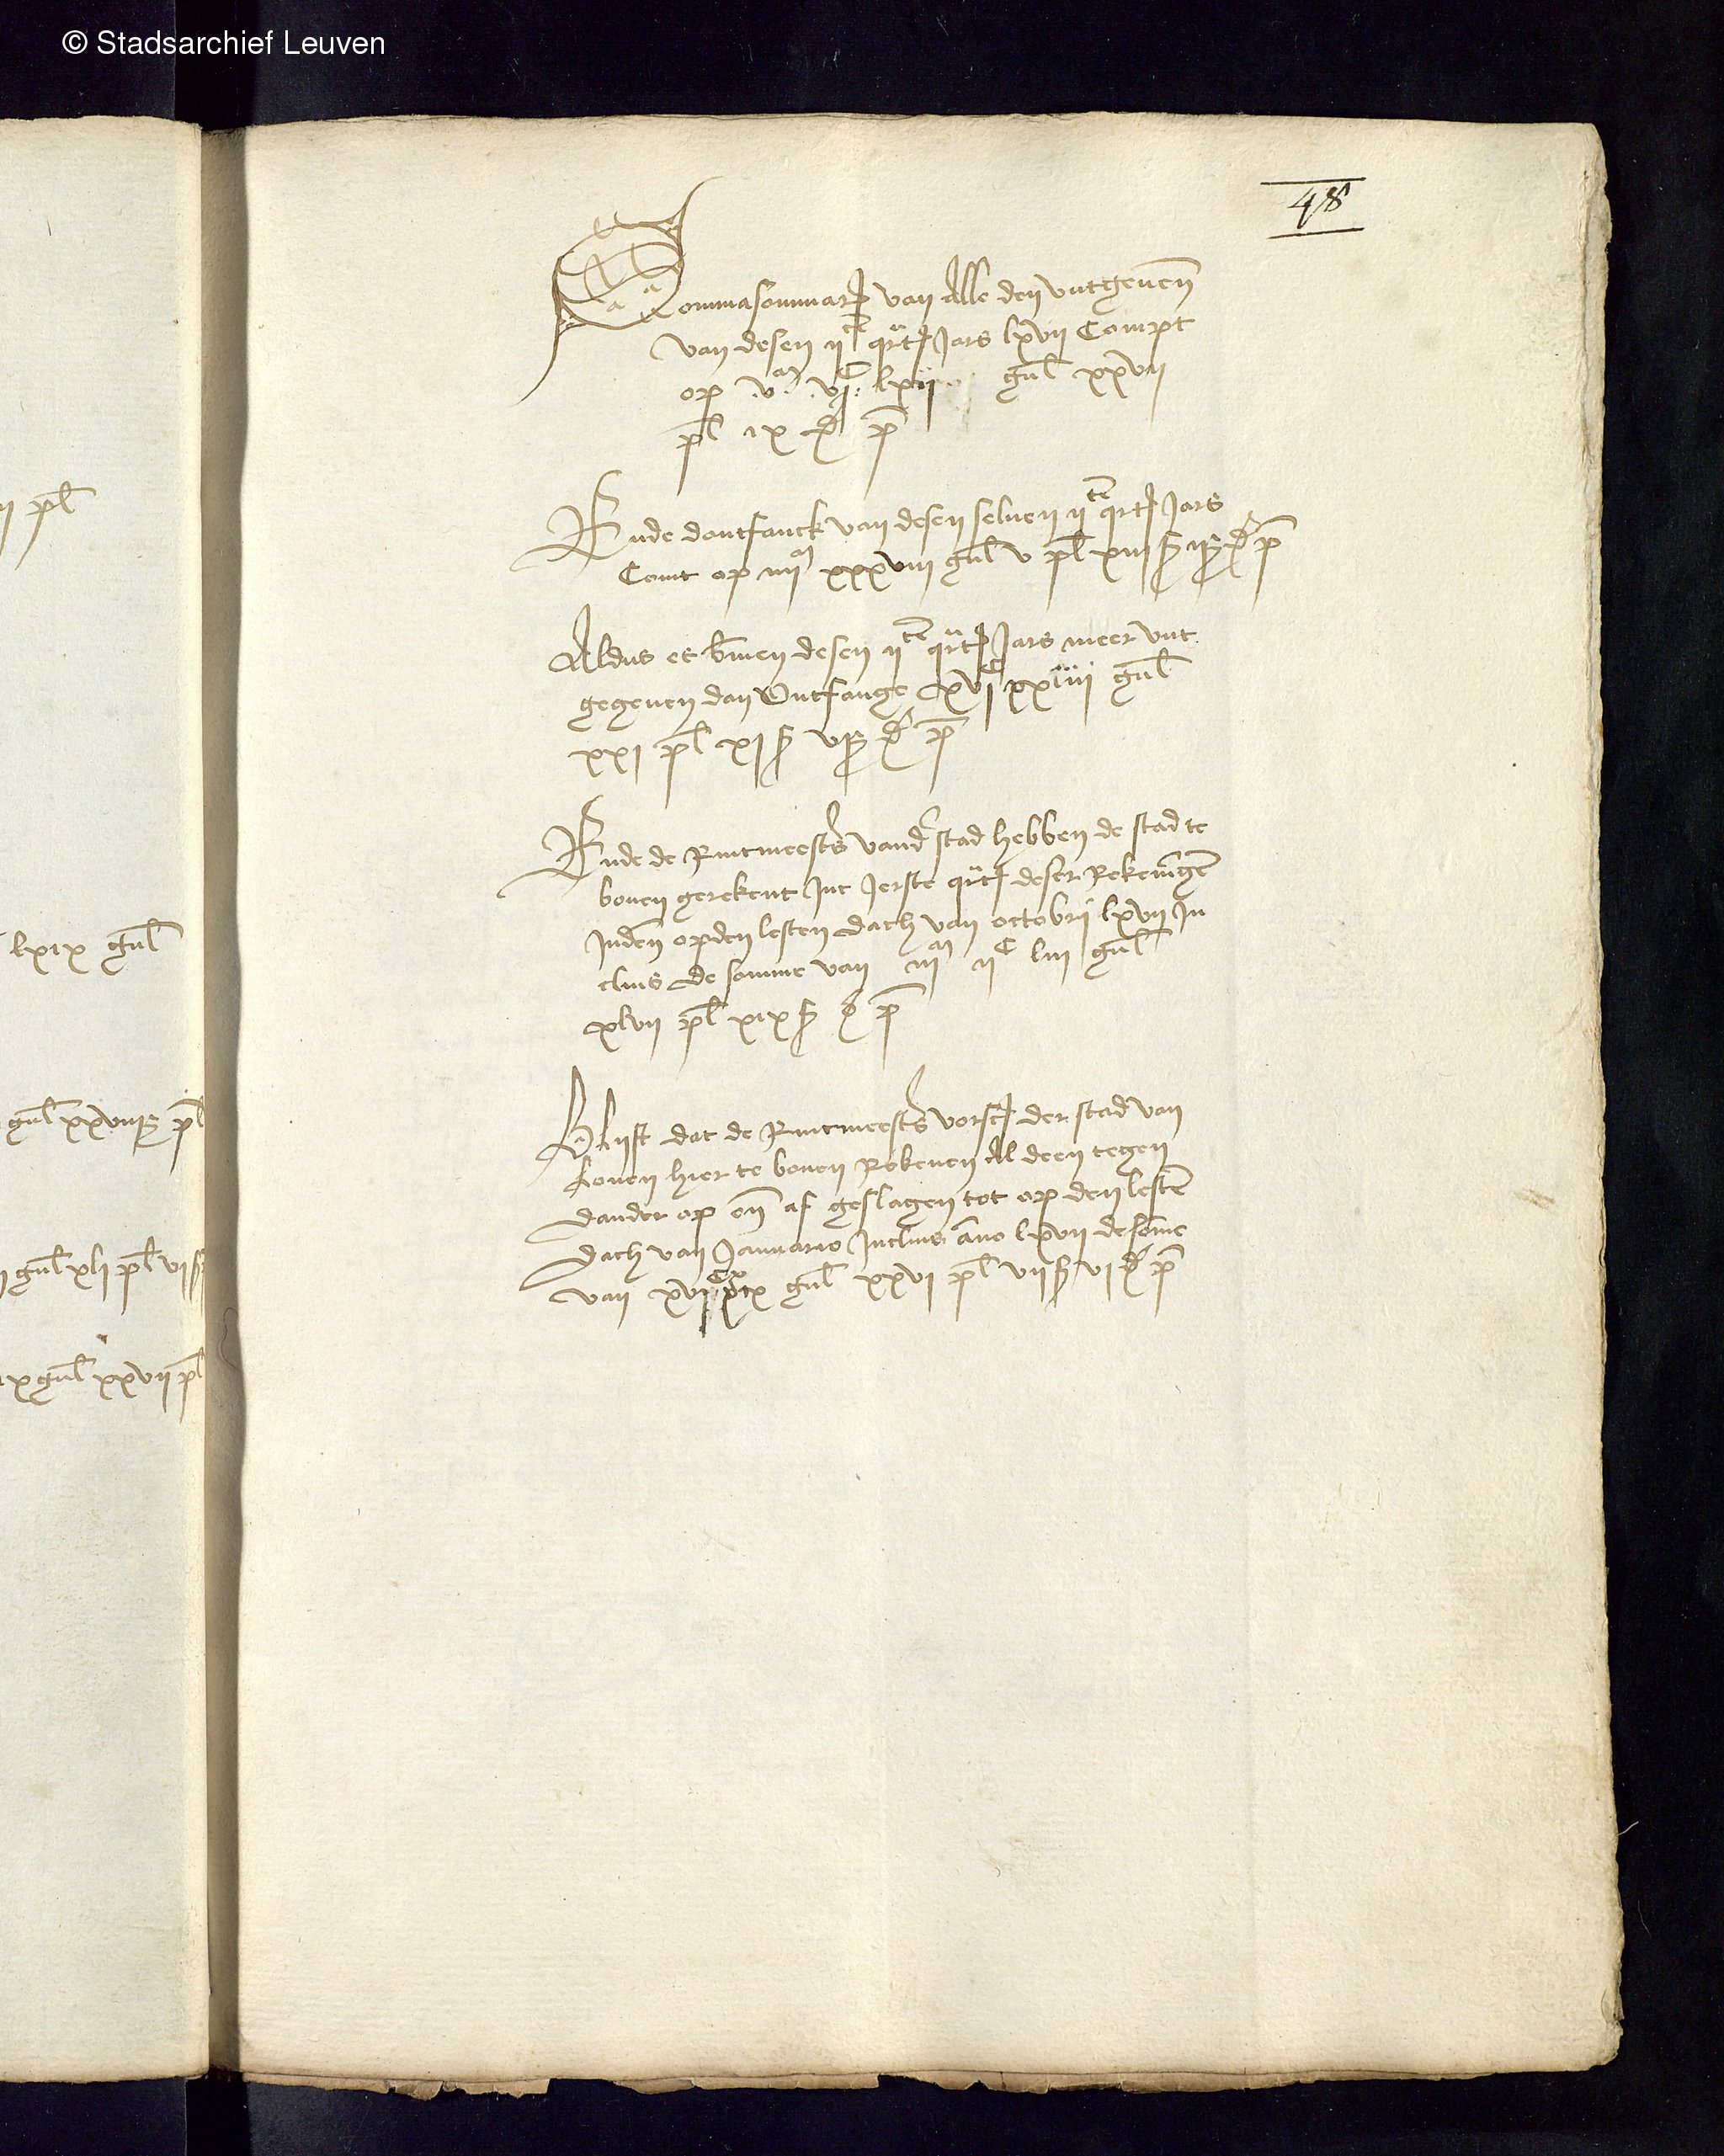 © Stadsarchief Leuven
48
Sommasommarum van Alle den uutgeuen
van desen ij te quartier Jars lxvij Compt
op v m vj c lxij gul xxvij
pl ix d p
Ende dontfanck van desen seluen ij te quartier Jars
Comt op iiij m xxxviij gul v pl xiij s d p
Aldus es bynnen desen ij te quartier Jars meer uut
gegeuen dan Ontfange xvj c xxiiij gul
xxj pl xj s d p
Ende de Rintmeesters vander stad hebben de stad te
bouen gerekent Int Ierste quartier deser Rekeningen
Inden opden lesten dach van octobri lxvij In
cluis de somme van iij m ij c liij gul
xlvij pl xix s d p
Blijft dat de Rintmeesters vorscr der stad van
Louen hier te bouen Rekenen Al deen tegen
dander op en af geslagen tot op den lesten
dach van Januario Incluis anno lxvij de somme
van gul xxvj pl vij s vj d p
pl
lxix gul
gul pl
gul xlj pl vj s
gul xxvij pl